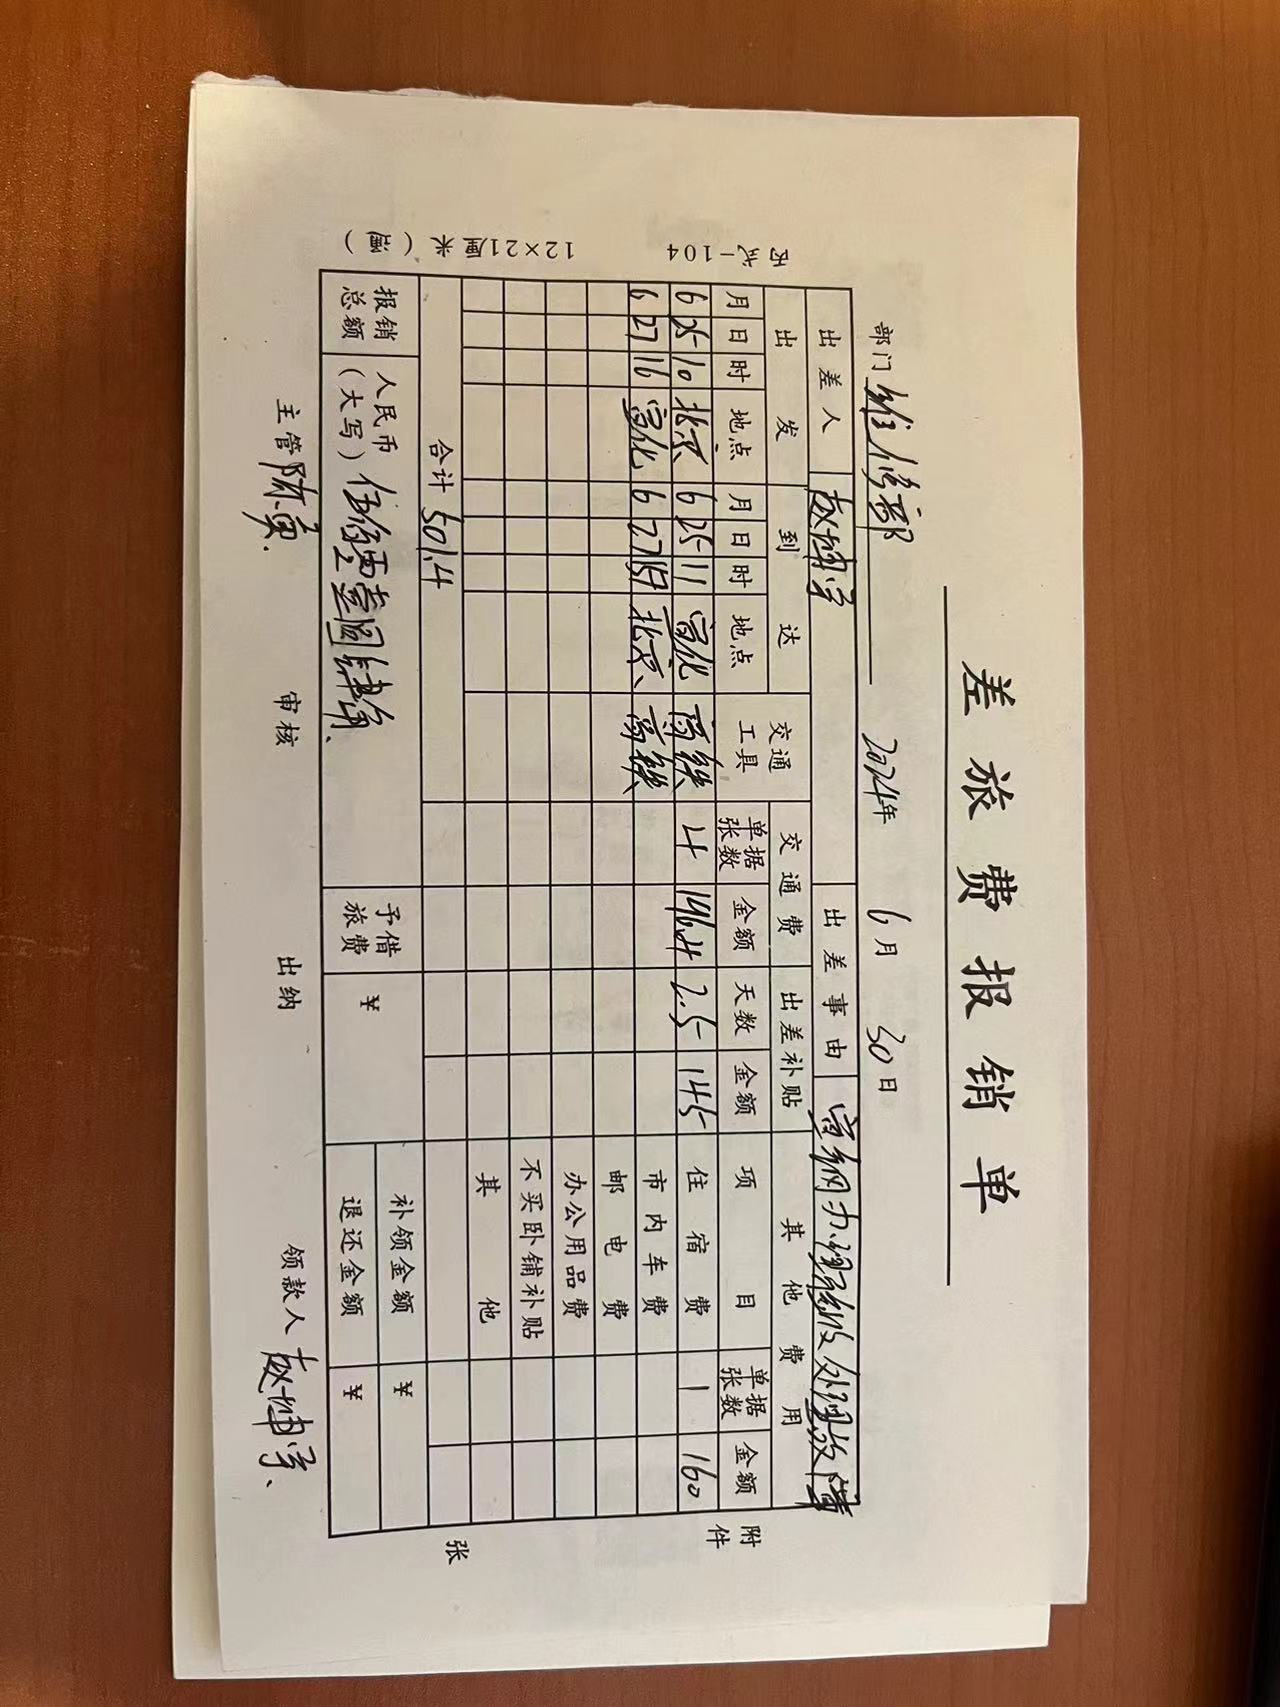 差旅费报销单
部门 维修部 2024年 6月 30日
出差人 赵博学 出差事由 宣钢办理验收处理故障
出发 到达 交通工具 交通费 出差补贴 其他费用
月 日 时 地点 月 日 时 地点 单据张数 金额 天数 金额 项目 单据张数 金额
6 25 10 北京 6 25 11 宣化 高铁 4 196.4 2.5 145 住宿费 1 160
6 27 16 宣化 6 27 北京 高铁 市内车费
邮电费
办公用品费
不买卧铺补贴
其他
合计 501.4
报销总额 人民币(大写) 伍佰零壹圆肆角 予借旅费 ¥ 补领金额 ¥
退还金额 ¥
主管 陈勇 审核 出纳 领款人 赵博学
附件 张
西式-104 12×21厘米